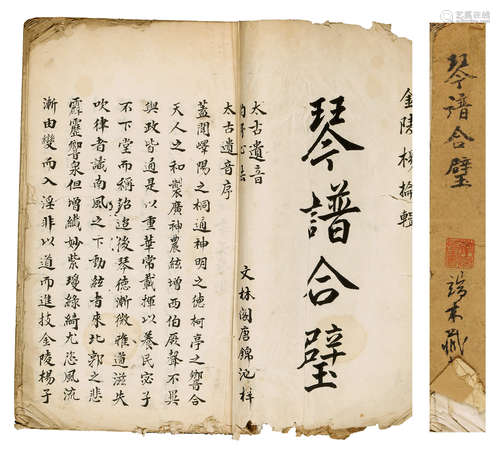 琴譜合璧
端木藏
金陵楊掄輯
琴譜合璧
文林閣唐錦池梓
太古遺音
太古遺音序
蓋聞嶧陽之桐通神明之德柯亭之響合
天人之和製廣神農絃增西伯厥聲不異
與政皆通是以重華常載揮以養民宓子
不下堂而稱治迨後琴德漸微雅道滋失
吹律者識南風之下動絃者來北郭之悲
霹靂響泉但增纖妙紫瓊綠綺尤恣風流
漸由變而入淫非以道而進技金陵楊子